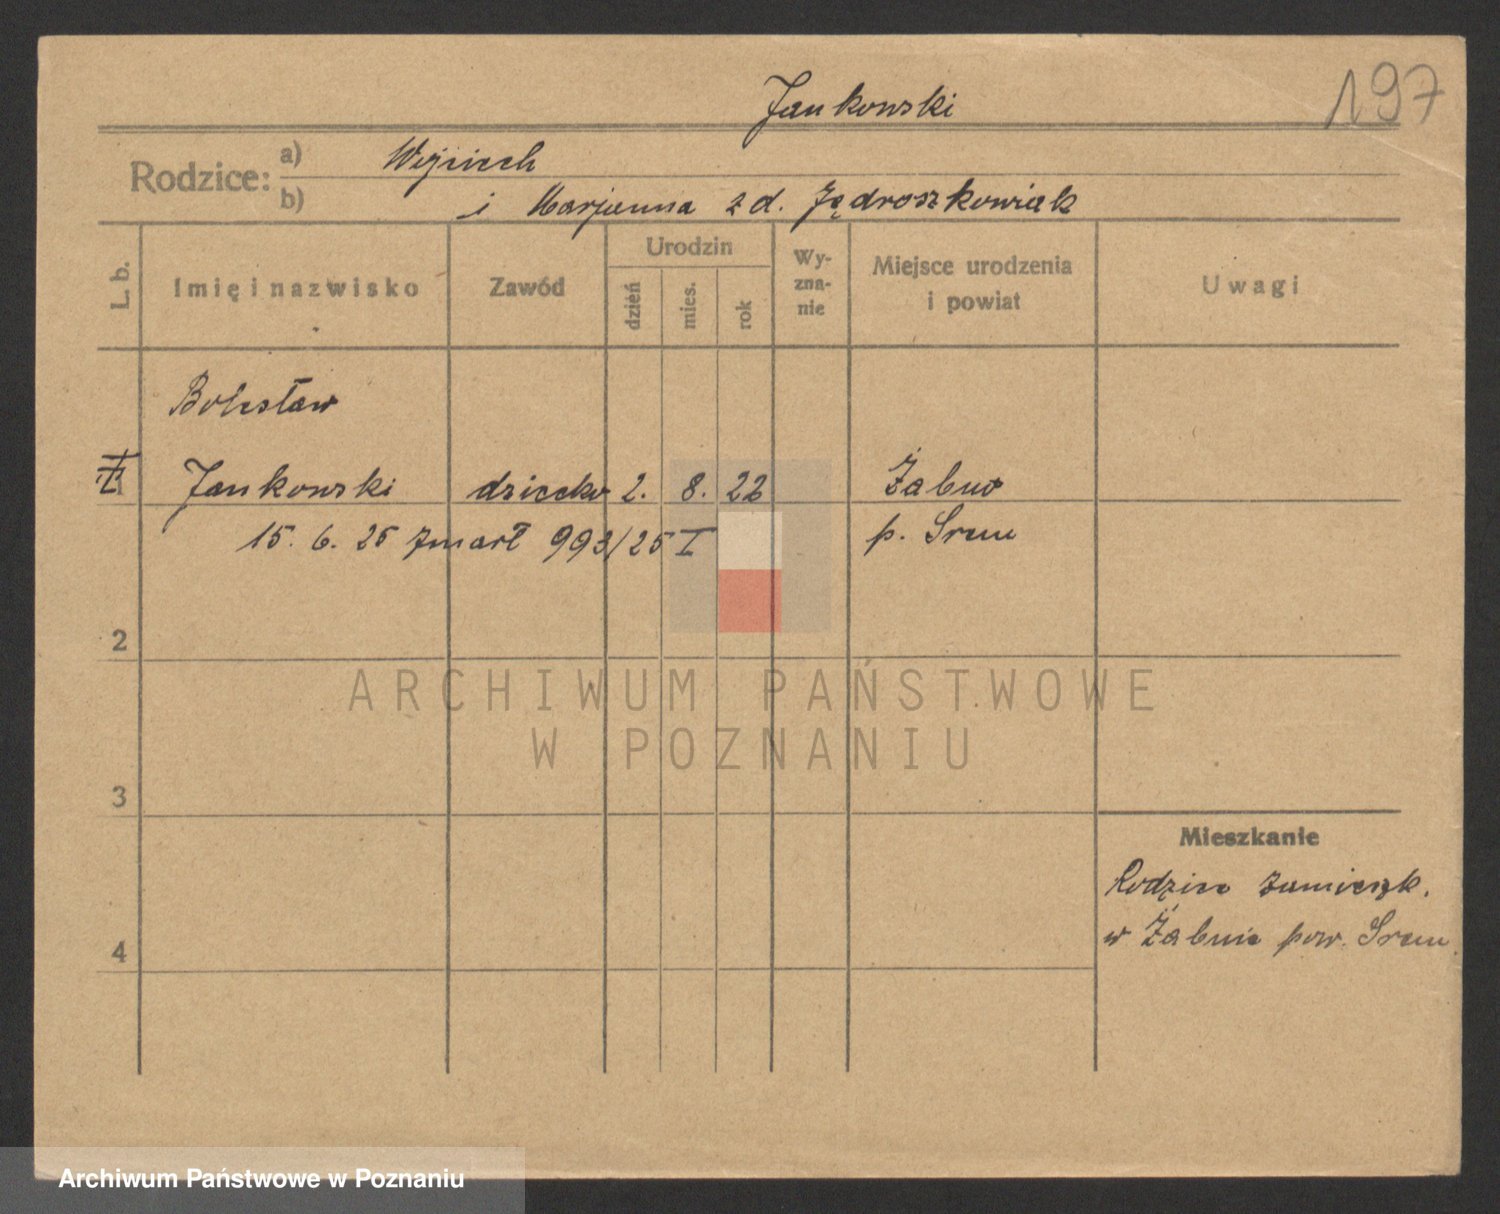 Jankowski
197
Rodzice: a) Wojciech
b) i Marjanna z d. Jędroszkowiak
L. b. Imię i nazwisko Zawód Urodzin dzień mies. rok Wyznanie Miejsce urodzenia i powiat Uwagi
Bolesław
Jankowski dziecko 2. 8. 22 Żabno
15. 6. 25 zmarł 993/25 I p. Śrem
2
ARCHIWUM PAŃSTWOWE
W POZNANIU
3
Mieszkanie
Rodzice zamieszk.
w Żabnie pow. Śrem
4
Archiwum Państwowe w Poznaniu